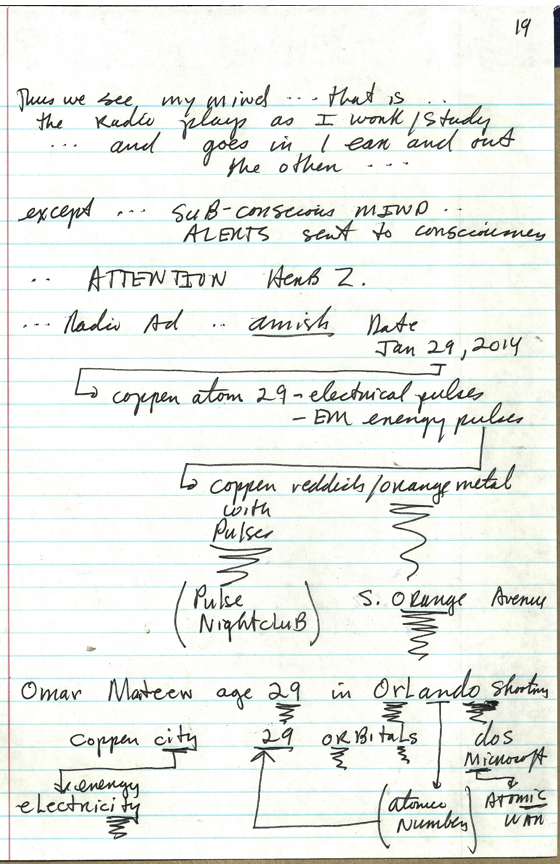 19
Thus we see, my mind ... that is ..
the Radio plays as I work/study
... and goes in 1 ear and out
the other ...
except ... SUB-conscious MIND ..
ALERTS sent to consciousness
.. ATTENTION HerB Z.
... Radio Ad .. amish Date
Jan 29, 2014
copper atom 29 - electrical pulses
- EM energy pulses
copper reddish/orange metal
with
Pulses
(Pulse S. ORange Avenue
NightcluB)
Omar Mateen age 29 in OrLando shooting
Copper city 29 ORBitaLs dos
Microsoft
energy
electricity (atomic Number) Atomic
WAR